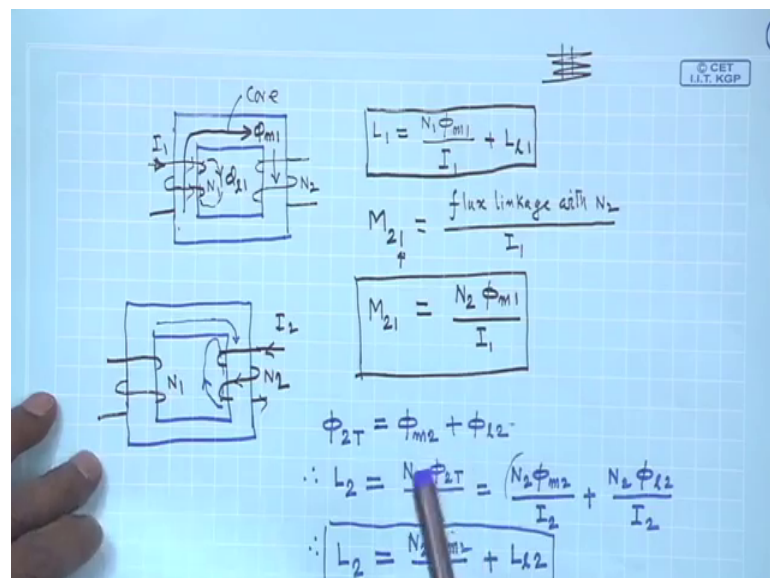 © CET
I.I.T. KGP
Core
ϕm1
I1
N
ϕl1
N2
L1 = N1 ϕm1 / I1 + Ll1
M21 = flux linkage with N2 / I1
M21 = N2 ϕm1 / I1
I2
N1
N2
ϕ2T = ϕm2 + ϕl2
∴ L2 = ϕ2T = N2 ϕm2 / I2 + N2 ϕl2 / I2
∴ L2 = + Ll2